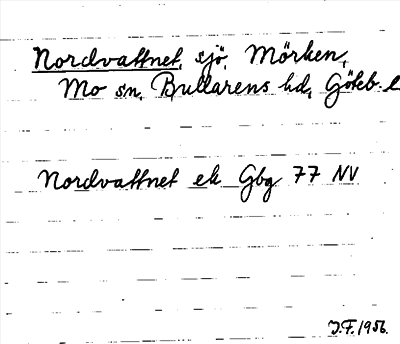 Nordvattnet, sjö, Mörken,
Mo sn, Bullarens hd, Göteb. l
Nordvattnet ek Gbg 77 NV
J.F. 1956.